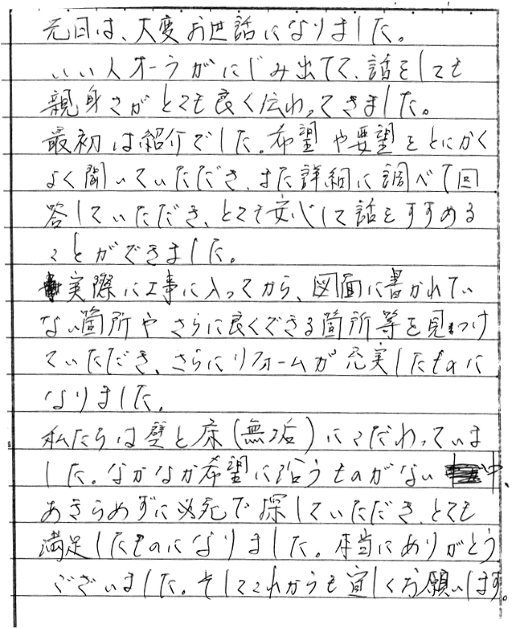 先日は、大変お世話になりました。
いい人オーラがにじみ出てて、話をしても
親身さがとても良く伝わってきました。
最初は紹介でした。希望や要望をとにかく
よく聞いていただき、また詳細に調べて回
答していただき、とても安心して話をすすめる
ことができました。
実際に工事に入ってから、図面に書かれてい
ない箇所やさらに良くできる箇所等を見つけ
ていただき、さらにリフォームが充実したものに
なりました。
私たちは壁と床(無垢)にこだわっていま
した。なかなか希望に沿うものがない中、
あきらめずに必死で探していただき、とても
満足したものになりました。本当にありがとう
ございました。そしてこれからも宜しくお願いします。